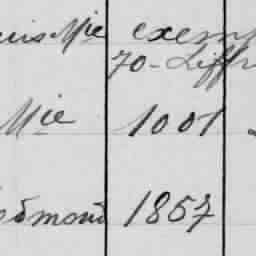 uis Mie exem
70 - Liffr
Mie 1001
edmond 1857